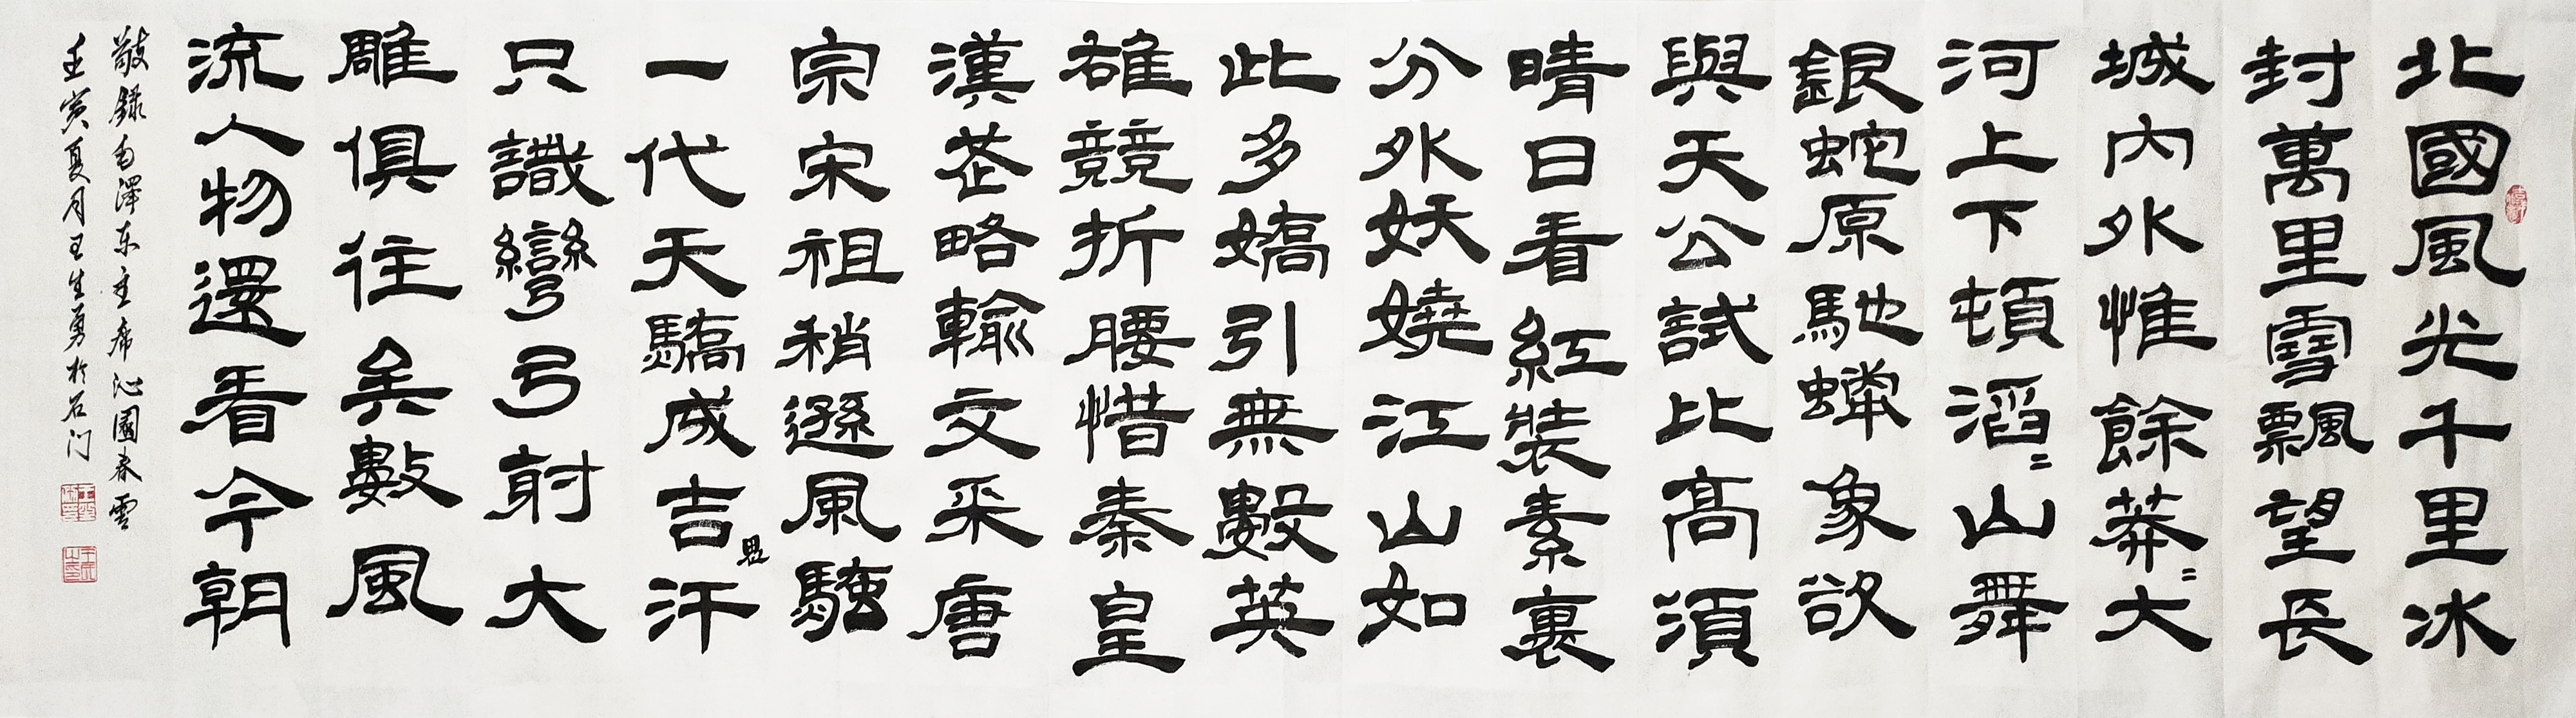 北國風光千里冰
封萬里雪飄望長
城內外惟餘莽〻大
河上下頓滔〻山舞
銀蛇原馳蠟象欲
與天公試比高須
晴日看紅裝素裹
分外妖嬈江山如
此多嬌引無數英
雄競折腰惜秦皇
漢武略輸文采唐
宗宋祖稍遜風騷
一代天驕成吉思汗
只識彎弓射大
雕俱往矣數風
流人物還看今朝
敬錄毛澤东主席沁園春雪
壬寅夏月王生勇於石门